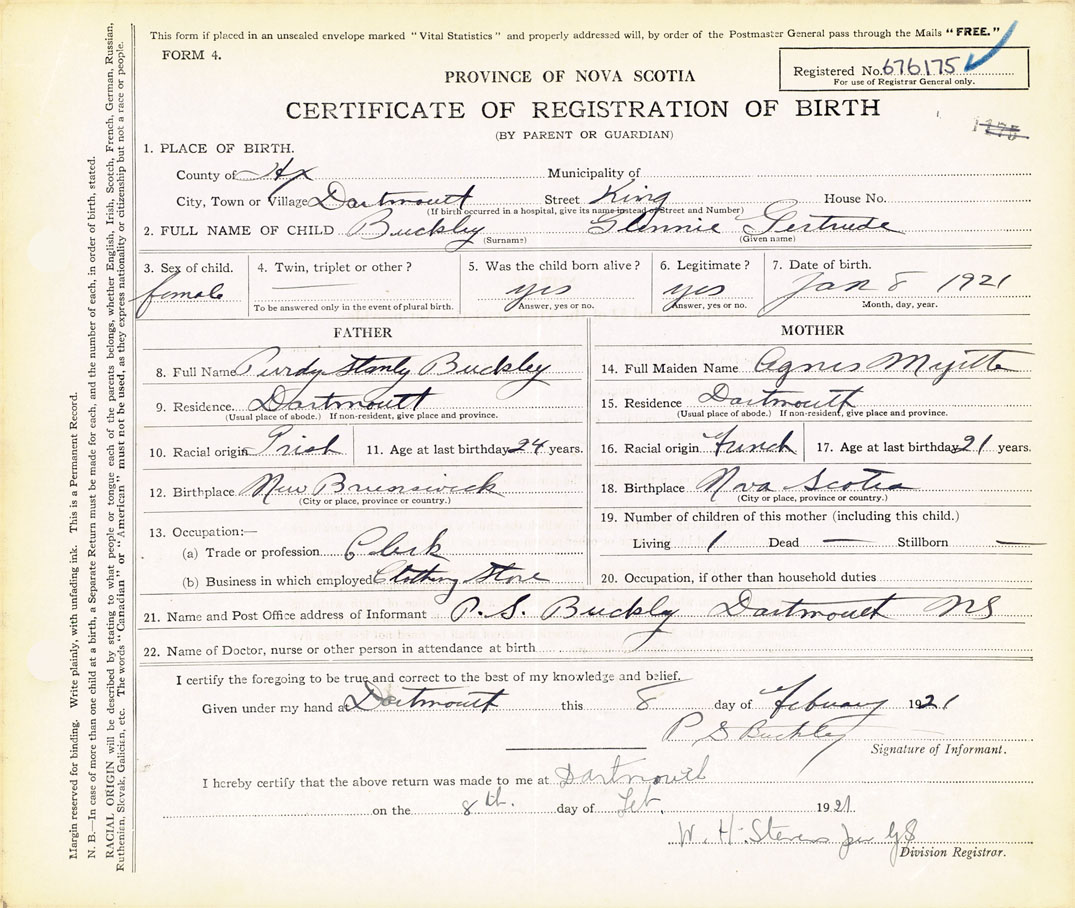 This form if placed in an unsealed envelope marked "Vital Statistics" and properly addressed will, by order of the Postmaster General pass through the Mails "FREE."
FORM 4.
Registered No. 676175
For use of Registrar General only.
PROVINCE OF NOVA SCOTIA
CERTIFICATE OF REGISTRATION OF BIRTH
(BY PARENT OR GUARDIAN)
1. PLACE OF BIRTH.
County of Hx Municipality of
City, Town or Village Dartmoutt Street King House No.
(If birth occurred in a hospital, give its name instead of Street and Number)
2. FULL NAME OF CHILD Buckley Glennie Gertrude
(Surname) (Given name)
3. Sex of child. 4. Twin, triplet or other? 5. Was the child born alive? 6. Legitimate? 7. Date of birth.
female yes yes Jan 8 1921
To be answered only in the event of plural birth. Answer, yes or no. Answer, yes or no. Month, day, year.
FATHER
8. Full Name Purdy Stanly Buckley
9. Residence. Dartmoutt
(Usual place of abode.) If non-resident, give place and province.
10. Racial origin Irish 11. Age at last birthday 24 years.
12. Birthplace New Brunswick
(City or place, province or country.)
13. Occupation:—
(a) Trade or profession Clerk
(b) Business in which employed Clothing Store
MOTHER
14. Full Maiden Name Agnes
15. Residence Dartmoutt
(Usual place of abode.) If non-resident, give place and province.
16. Racial origin French 17. Age at last birthday 21 years.
18. Birthplace Nova Scotia
(City or place, province or country.)
19. Number of children of this mother (including this child.)
Living 1 Dead — Stillborn —
20. Occupation, if other than household duties
21. Name and Post Office address of Informant P. S. Buckly Dartmoutt NS
22. Name of Doctor, nurse or other person in attendance at birth
I certify the foregoing to be true and correct to the best of my knowledge and belief.
Given under my hand at Dartmoutt this 8 day of February 1921
P S Buckley
Signature of Informant.
I hereby certify that the above return was made to me at Dartmouth
on the 8th. day of Feb. 1921
W. H. Stevens Jr
Division Registrar.
Margin reserved for binding. Write plainly, with unfading ink. This is a Permanent Record.
N. B.—In case of more than one child at a birth, a Separate Return must be made for each, and the number of each, in order of birth, stated.
RACIAL ORIGIN will be described by stating to what people or tongue each of the parents belongs, whether English, Irish, Scotch, French, German, Russian,
Ruthenian, Slovak, Galician, etc. The words "Canadian" or "American" must not be used, as they express nationality or citizenship but not a race or people.